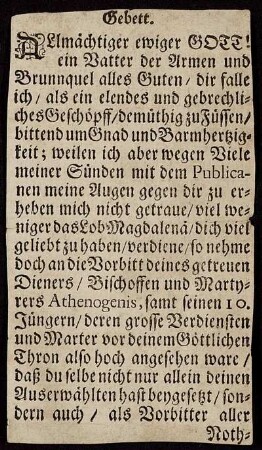 Gebett.
ALlmächtiger ewiger GOTT!
ein Vatter der Armen und
Brunnquel alles Guten / dir falle
ich / als ein elendes und gebrechli-
ches Geschöpff / demüthig zu Füssen /
bittend um Gnad und Barmhertzig-
keit; weilen ich aber wegen Viele
meiner Sünden mit dem Publica-
nen meine Augen gegen dir zu er-
heben mich nicht getraue / viel we-
niger das Lob Magdalenä / dich viel
geliebt zu haben / verdiene / so nehme
doch an die Vorbitt deines getreuen
Dieners / Bischoffen und Marty-
rers Athenogenis, samt seinen 10.
Jüngern / deren grosse Verdiensten
und Marter vor deinem Göttlichen
Thron also hoch angesehen ware /
daß du selbe nicht nur allein deinen
Auserwählten hast beygesetzt / son-
dern auch / als Vorbitter aller
Noth-